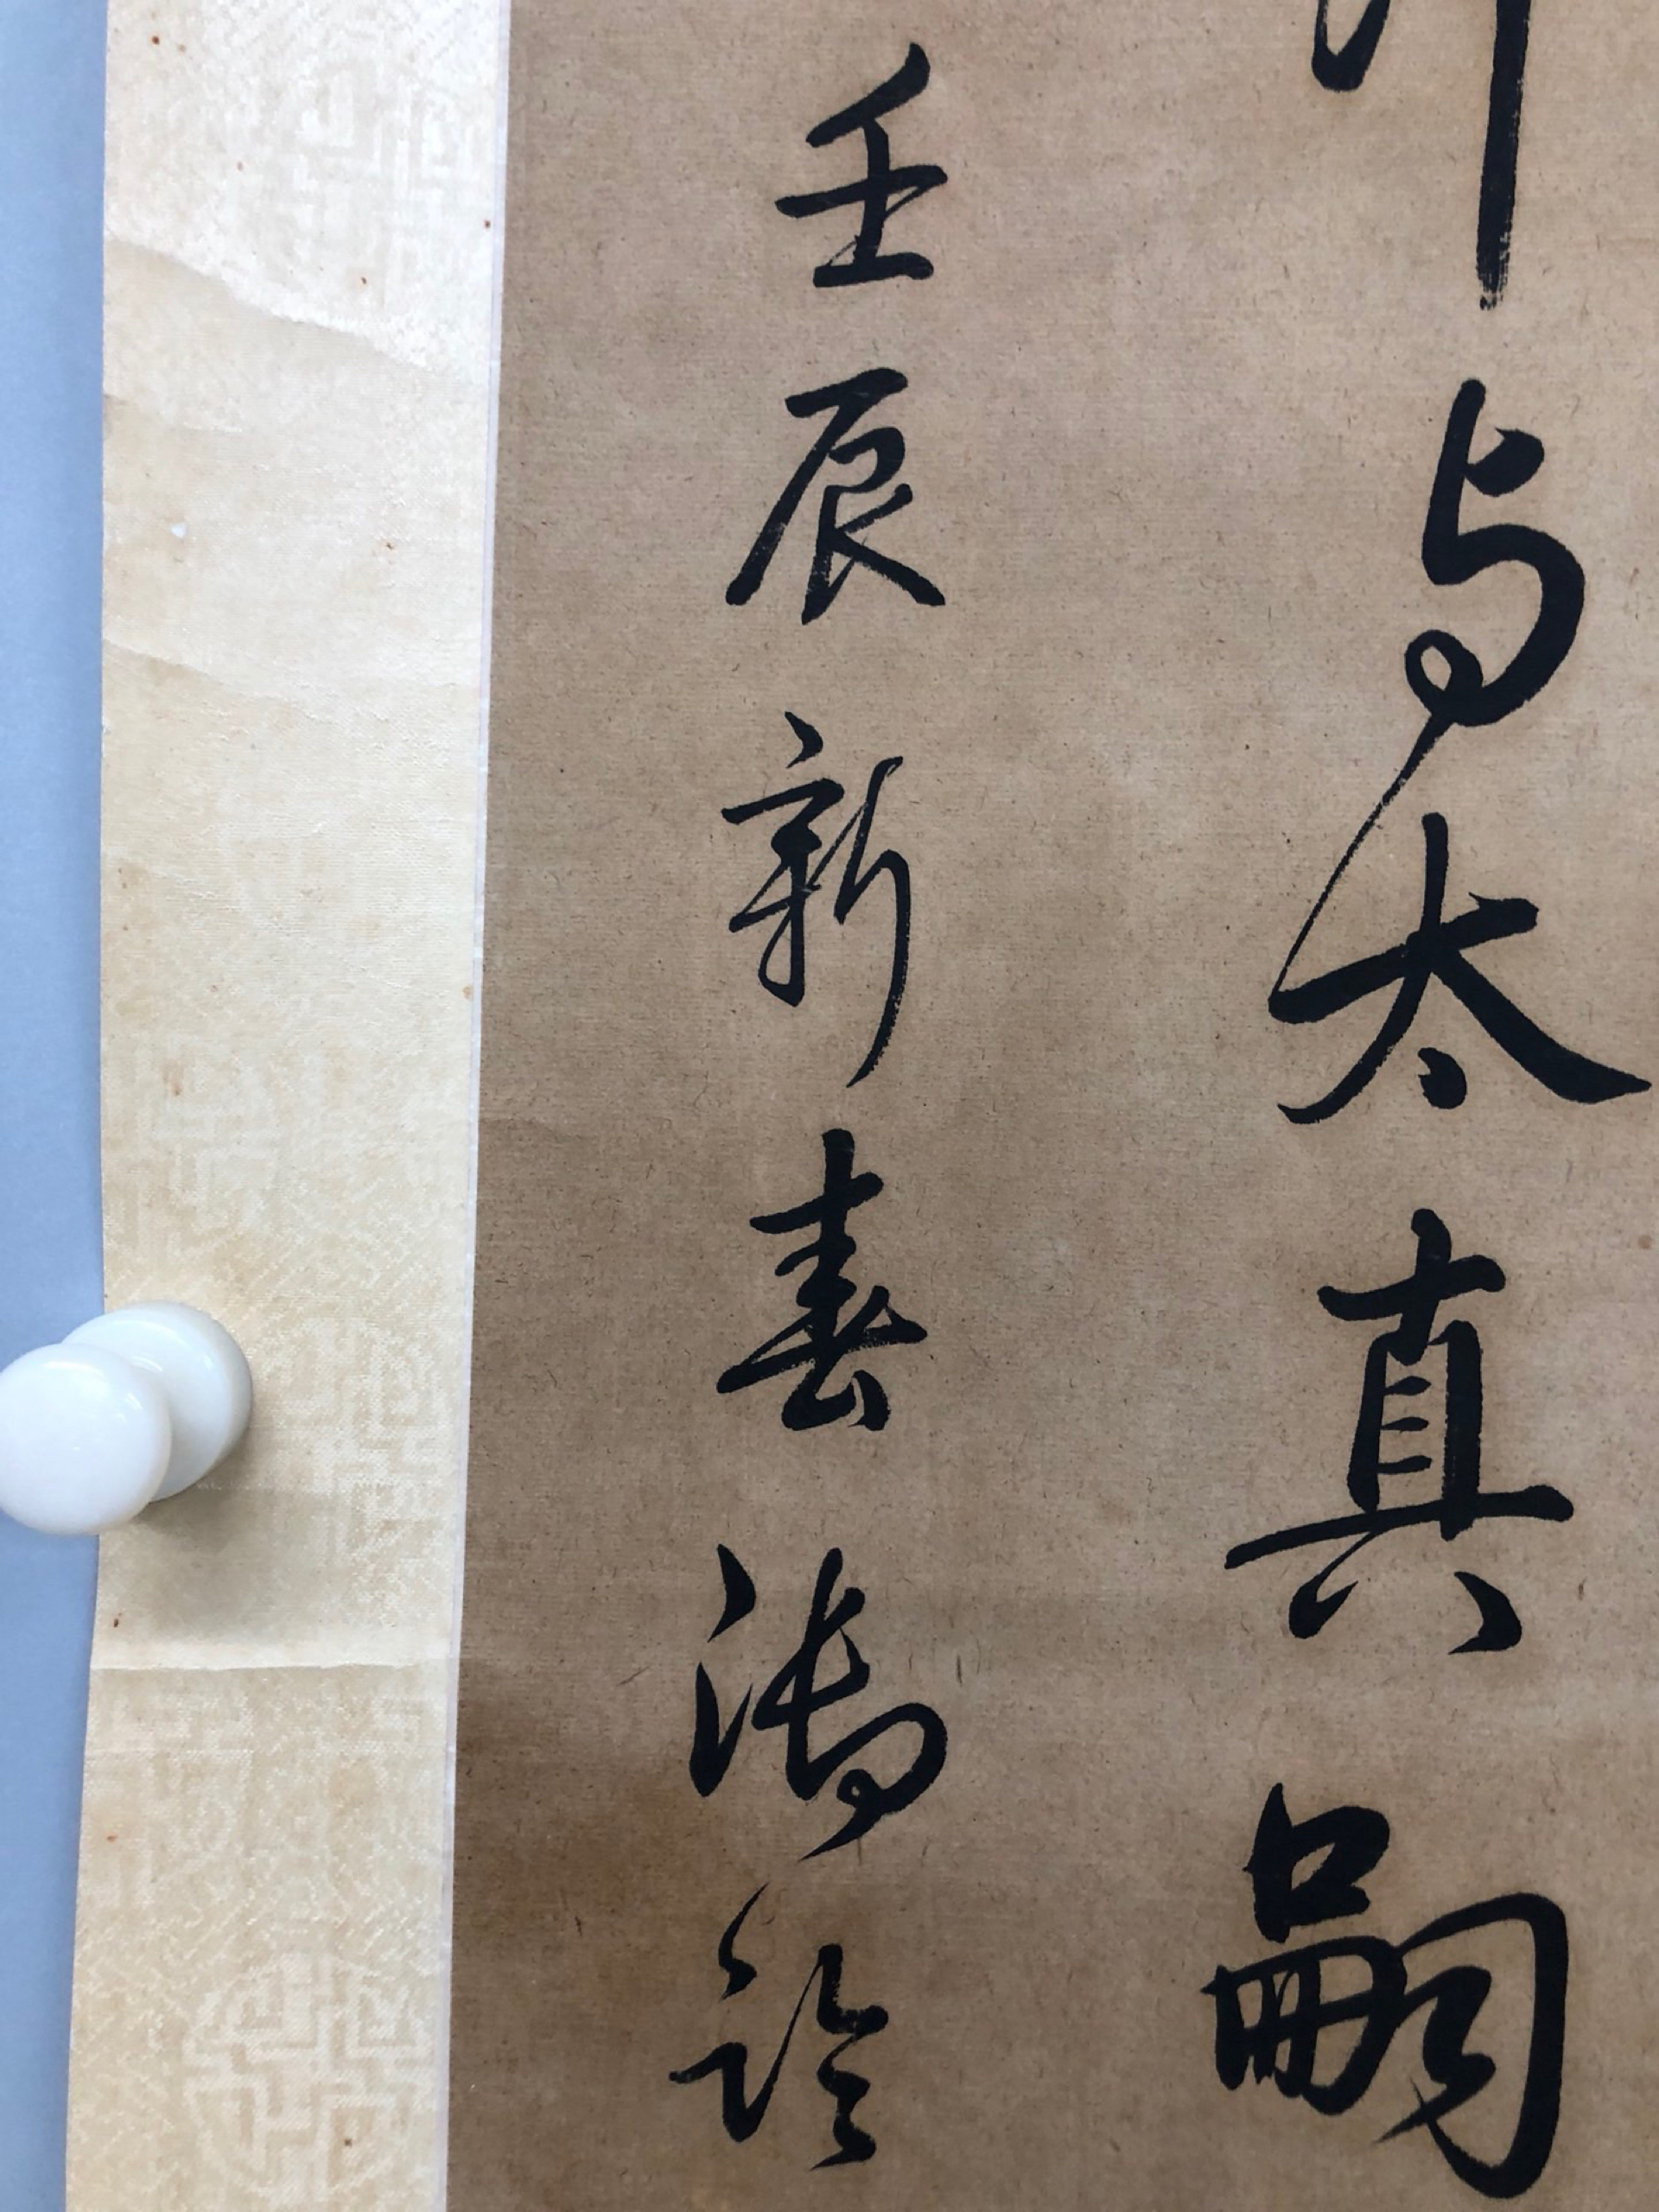 与太真嗣
壬辰新春御筆